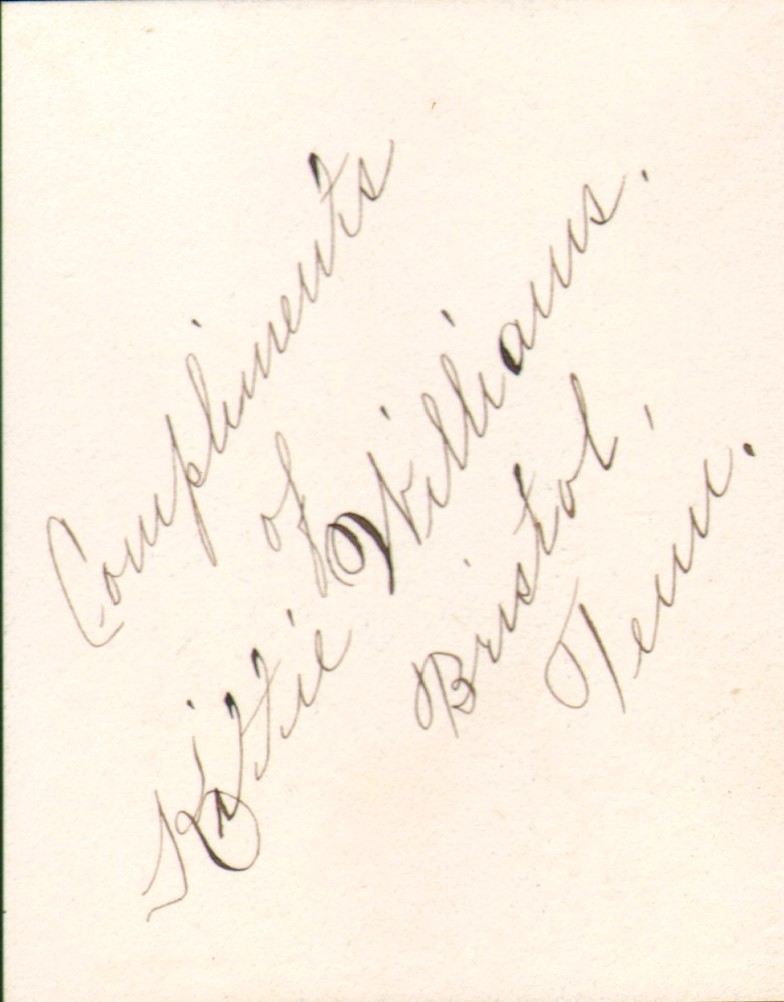 Compliments
of
Kittie Williams.
Bristol,
Tenn.